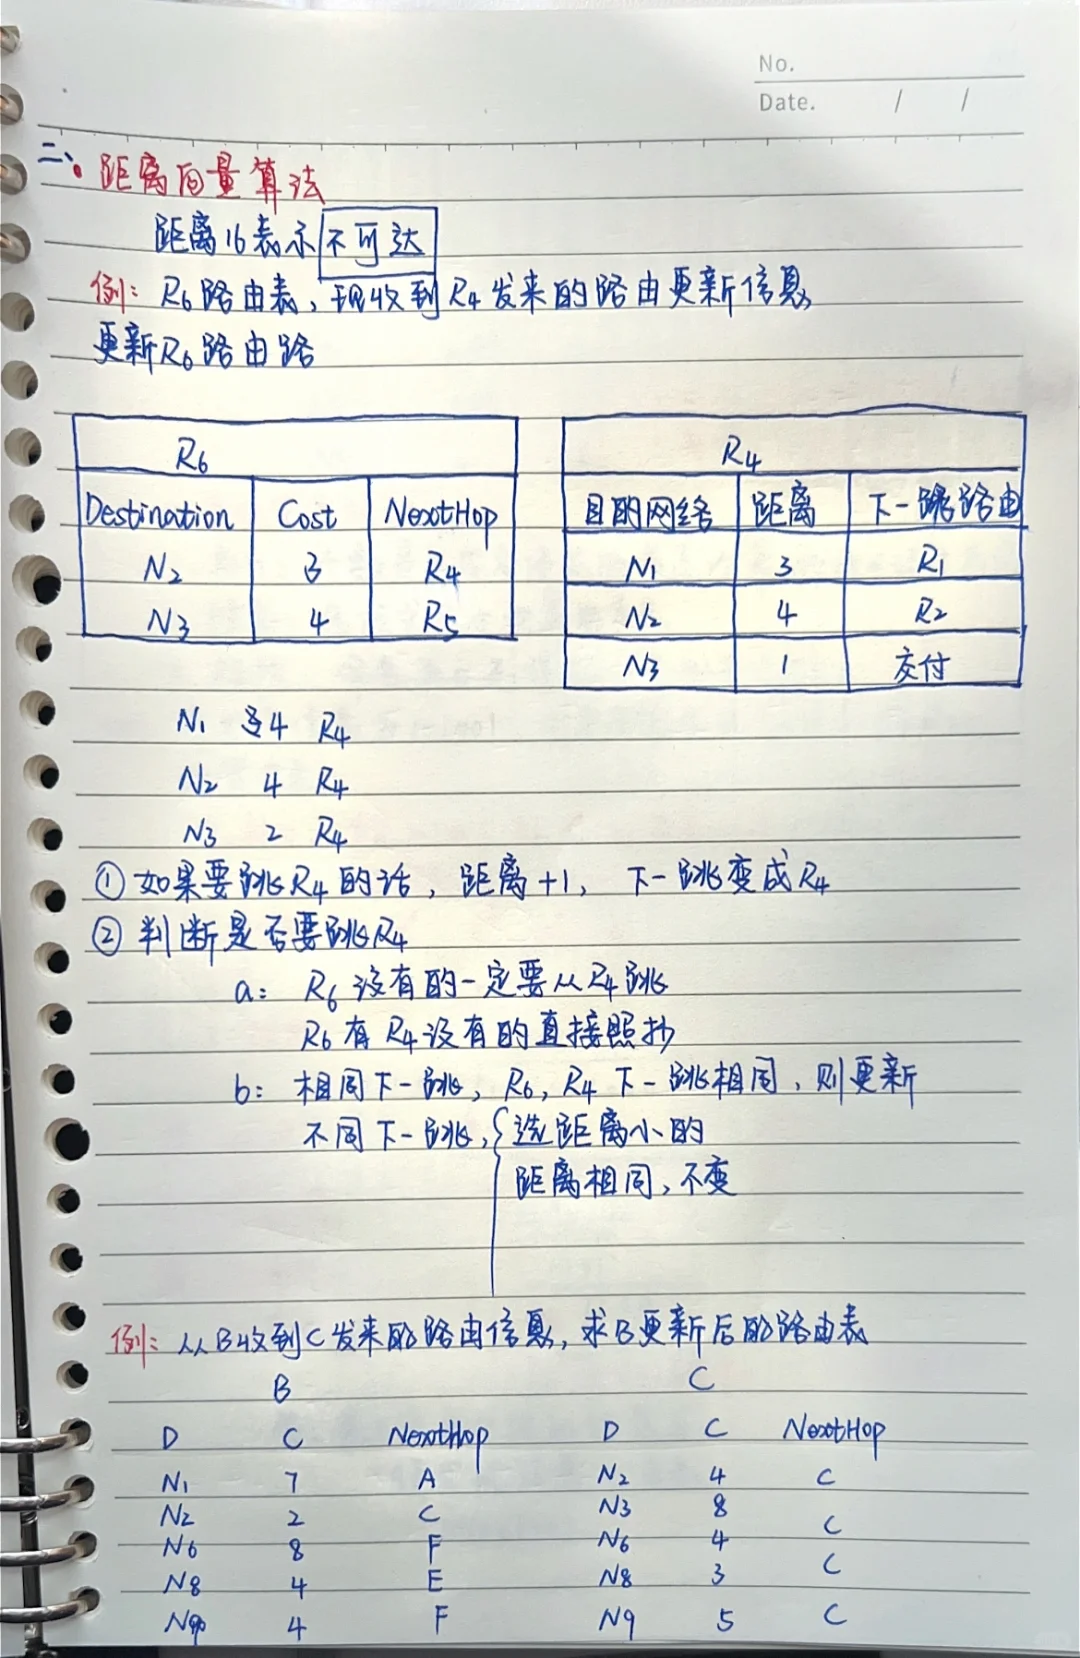 No.
Date. / /
二、距离向量算法
距离16表示不可达
例: R6路由表,现收到R4发来的路由更新信息
更新R6路由路
R6
Destination Cost NextHop
N2 3 R4
N3 4 R5
R4
目的网络 距离 下一跳路由
N1 3 R1
N2 4 R2
N3 1 交付
N1 4 R4
N2 4 R4
N3 2 R4
① 如果要跳R4的话,距离+1,下一跳变成R4
② 判断是否要跳R4
a: R6没有的一定要从R4跳
R6有R4没有的直接照抄
b: 相同下一跳,R6,R4下一跳相同,则更新
不同下一跳,{选距离小的
距离相同,不变
例: 从B收到C发来的路由信息,求B更新后的路由表
B C
D C NextHop D C NextHop
N1 7 A N2 4 C
N2 2 C N3 8 C
N6 8 F N6 4 C
N8 4 E N8 3 C
N9 4 F N9 5